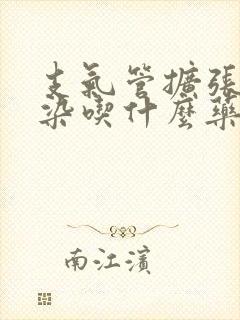 支氣管擴張
染喫什麼藥
南江濱